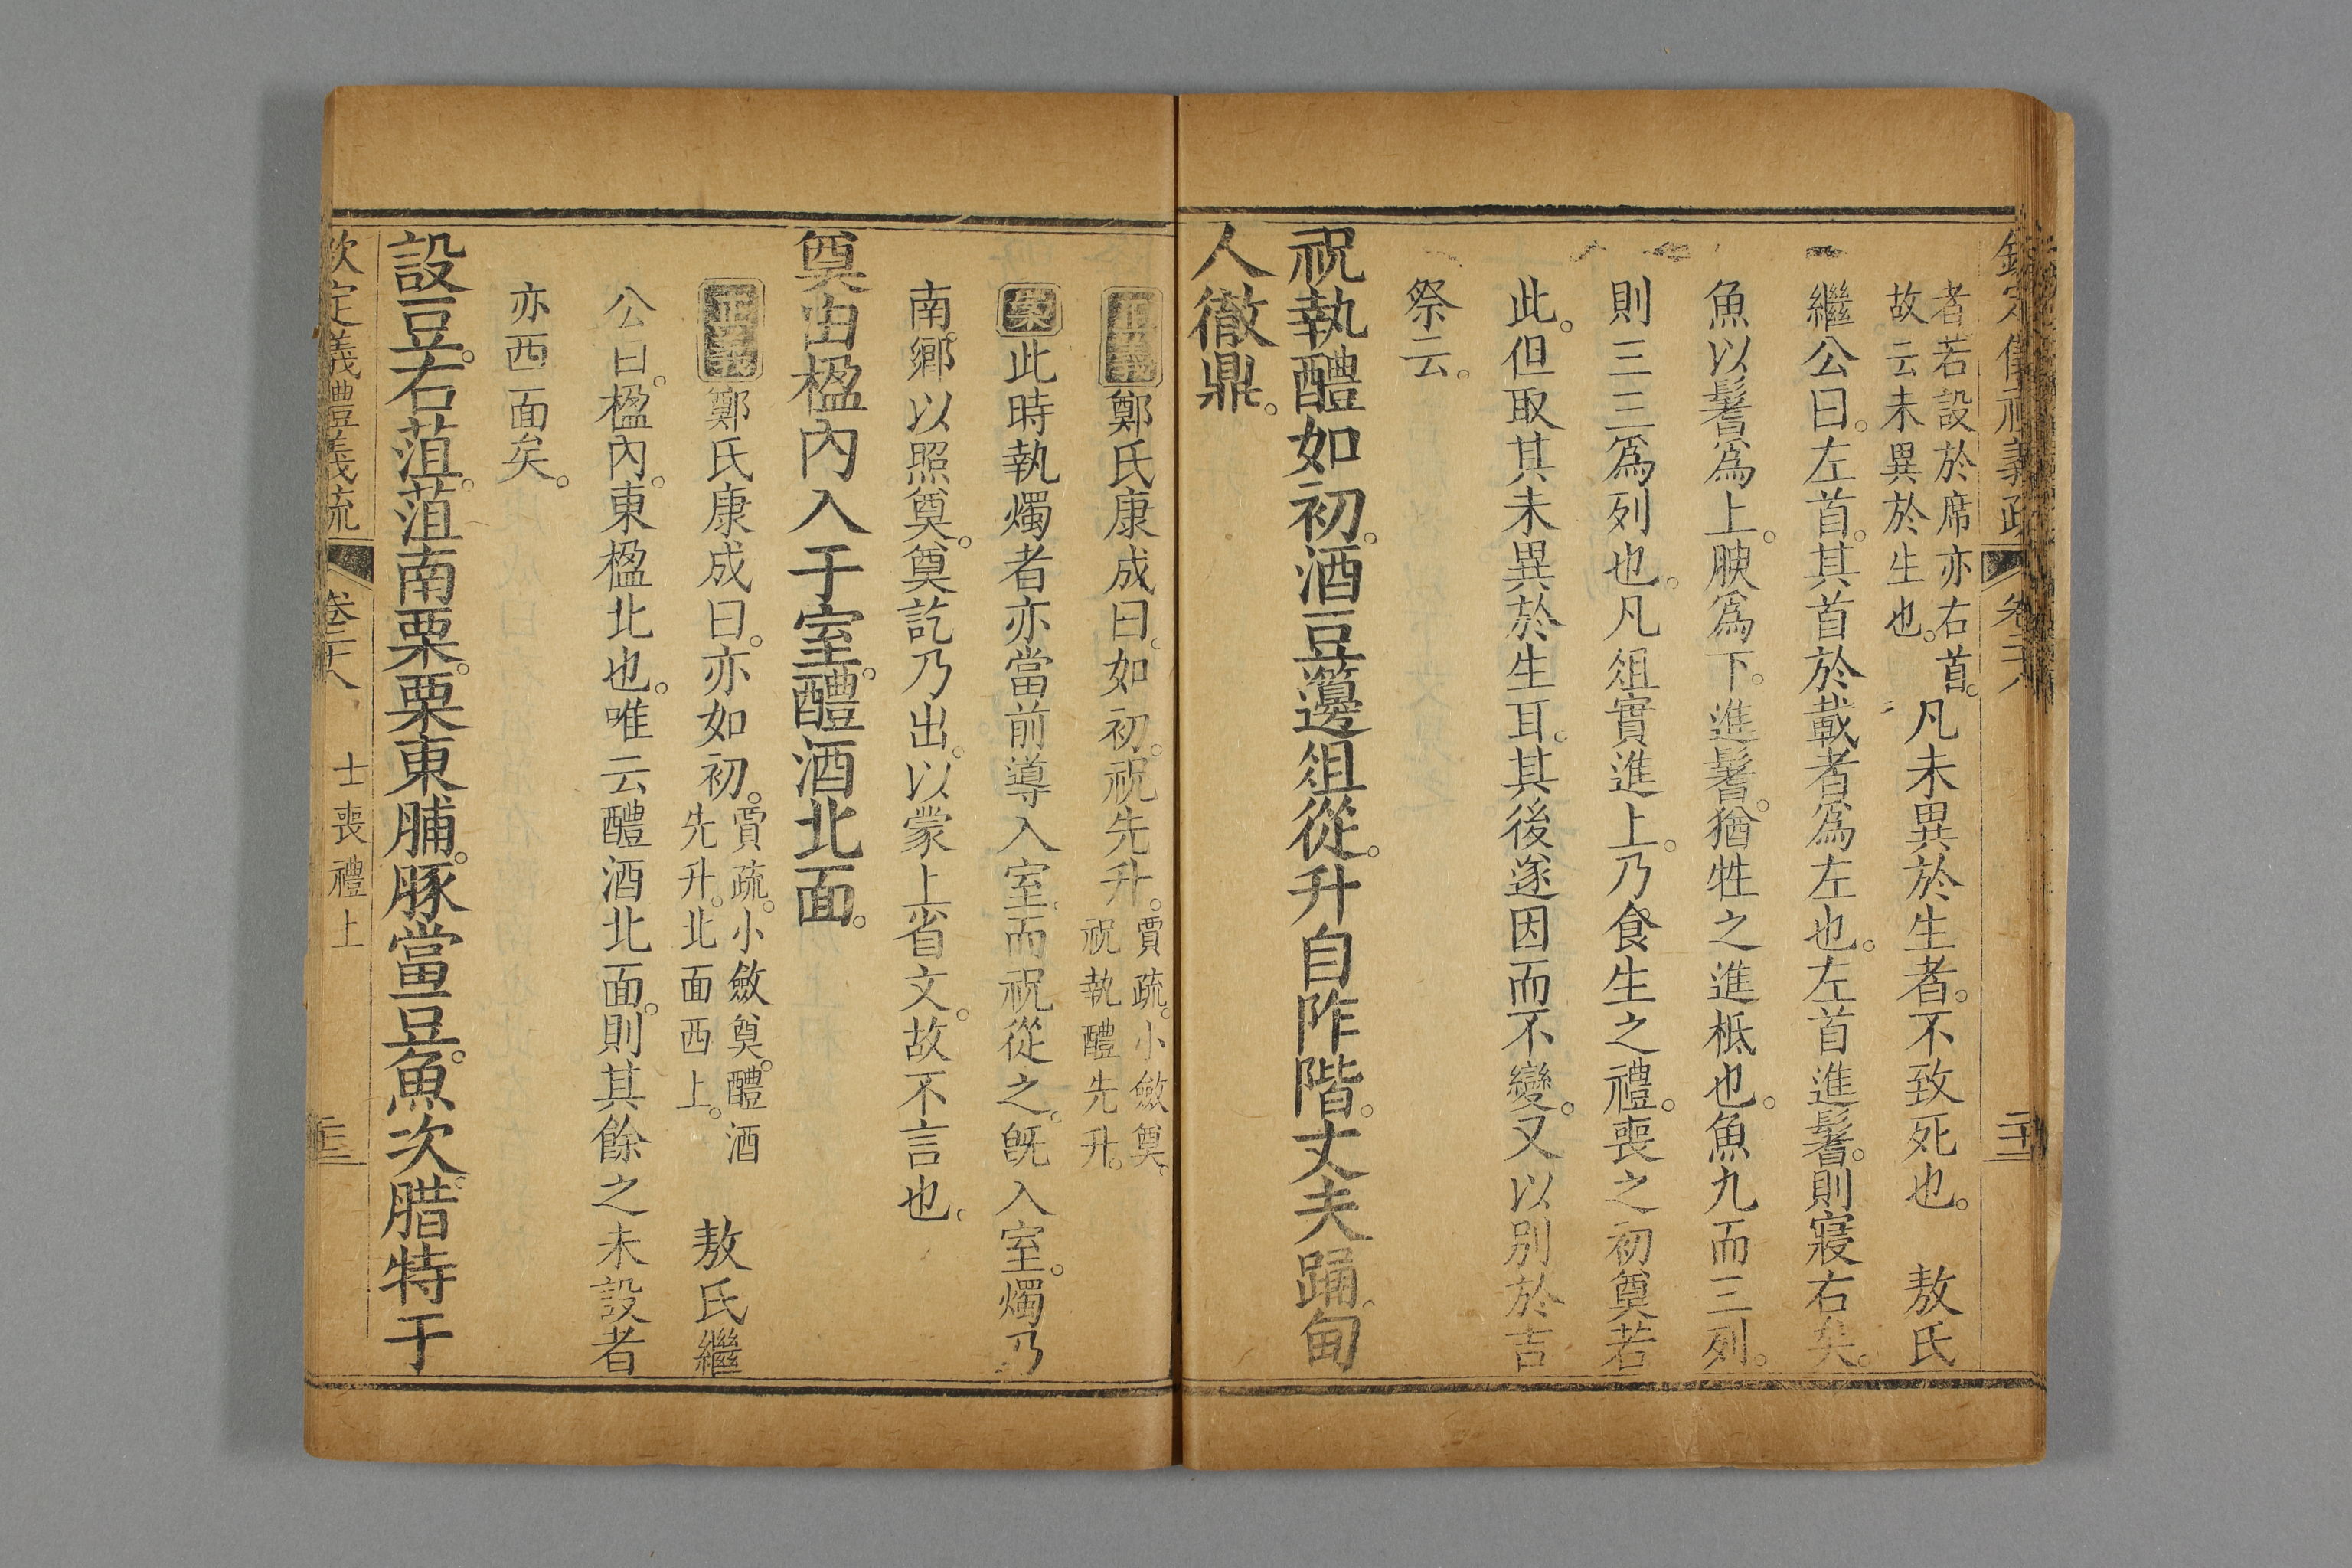 欽定儀禮義疏 卷二十八
者若設於席亦右首。
故云未異於生也。
凡未異於生者。不致死也。 敖氏
繼公曰。左首。其首於載者爲左也。左首進鬐。則寢右矣。
魚以鬐爲上。腴爲下。進鬐。猶牲之進柢也。魚九而三列。
則三三爲列也。凡俎實進上。乃食生之禮。喪之初奠若
此。但取其未異於生耳。其後遂因而不變。又以别於吉
祭云。
祝執醴如初。酒豆籩俎從。升自阼階。丈夫踊。甸
人徹鼎。
正義鄭氏康成曰。如初。祝先升。
賈疏。小斂奠。
祝執醴先升。
案此時執燭者亦當前導入室。而祝從之。旣入室。燭乃
南鄉以照奠。奠訖乃出。以蒙上省文。故不言也。
奠由楹內入于室。醴酒北面。
正義鄭氏康成曰。亦如初。
賈疏。小斂奠。醴酒
先升。北面西上。
敖氏繼
公曰。楹內。東楹北也。唯云醴酒北面。則其餘之未設者
亦西面矣。
設豆。右菹。菹南栗。栗東脯。豚當豆。魚次。腊特于
欽定義禮義疏 卷二十八 士喪禮上